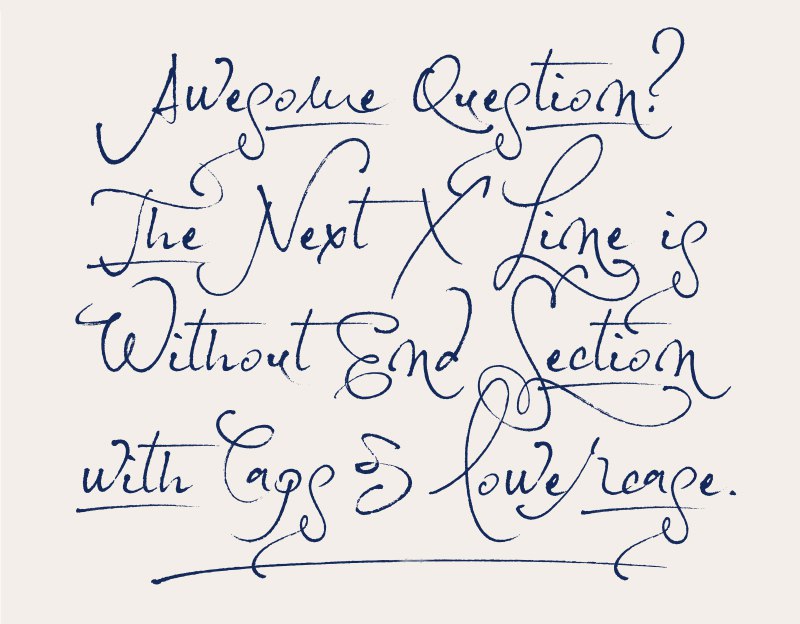 Awesome Question?
The Next X Line is
Without End Section
with Caps & lowercase.